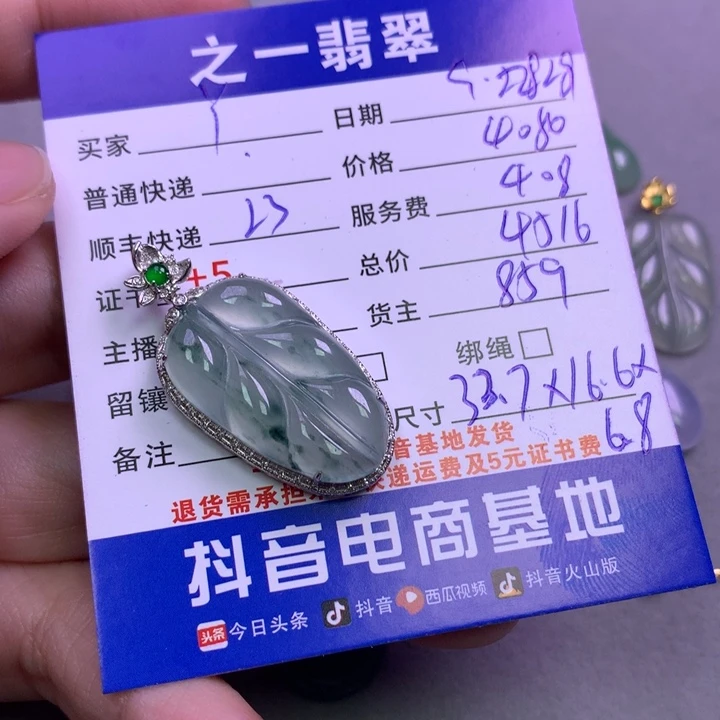 之一翡翠
买家 日期
普通快递 价格 4080
顺丰快递 23 服务费 408
证书 +5 总价
主播 货主 859
留镶 绑绳
备注 尺寸 33.7×16.6×6.8
音基地发货
退货需承担 递运费及5元证书费
抖音电商基地
头条 今日头条 抖音 西瓜视频 抖音火山版